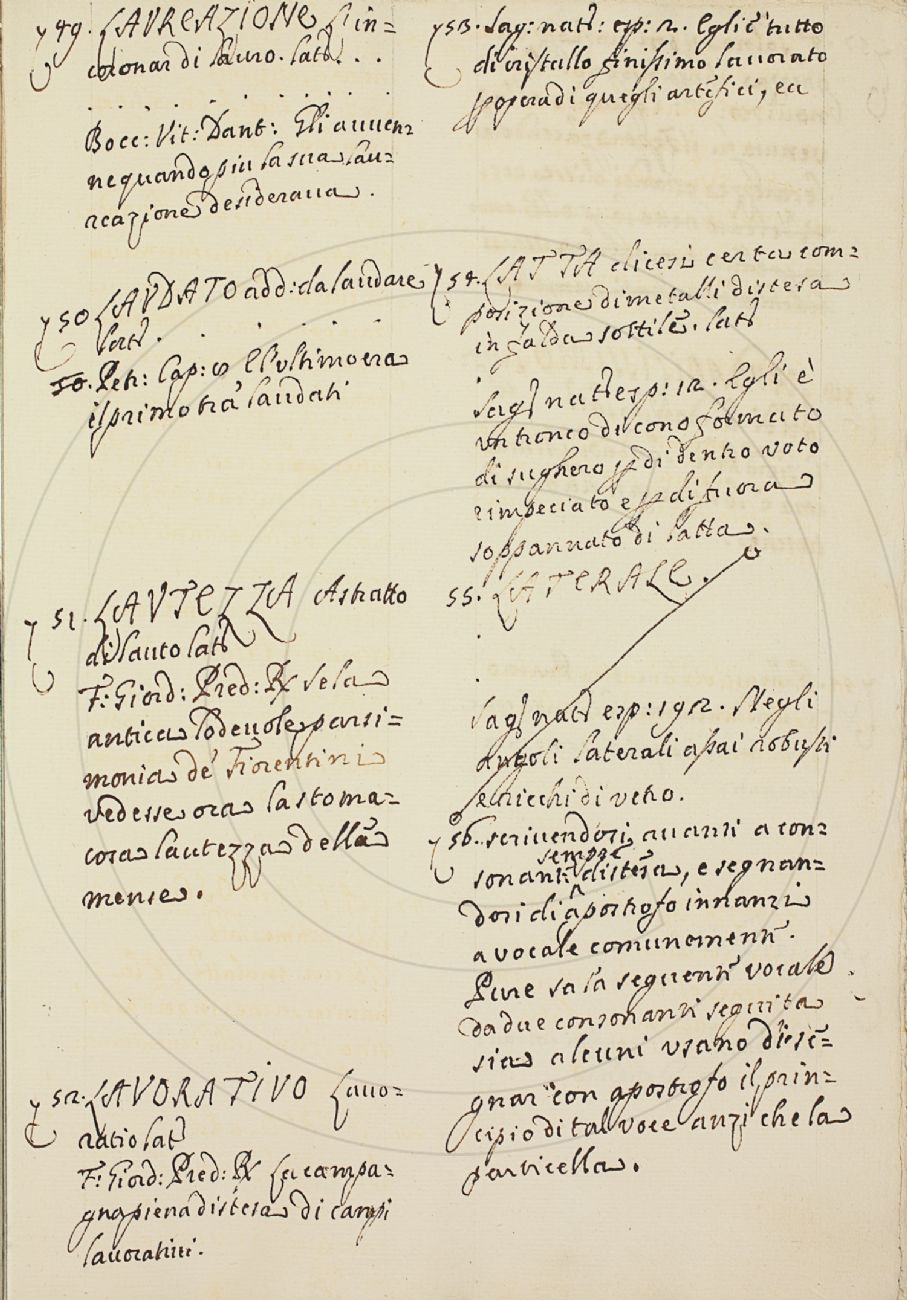 49. LAUREAZIONE L'in=
coronar di lauro. lat. . .
Bocc: Vit: Dant: Gli avven=
ne quando più la sua lau=
reazione desiderava.
50 LAUDATO add: da laudare
lat.
50. Petr: Cap: 9 E l'ultimo era
il primo tra' laudati
51. LAUTEZZA Astratto
di lauto lat
F: Giord: Pred: R Se la
antica lodevole parsi=
monia de' Fiorentini
vedesse ora la stoma=
cosa lautezza delle
mense.
52. LAVORATIVO Lavo=
ratio lat
F: Giord: Pred: R La campa=
gna piena distesa di campi
lavorativi.
53. Sag: nat: esp: 2. Egli è tutto
di cristallo finissimo lavorato
p opera di quegli artefici, ec
54. LATTA dicesi certa com=
posizione di metalli distesa
in falda sottile. lat
Sag nat esp: 12. Egli è
un tronco di cono formato
di sughero p di dentro voto
e impeciato e p di fuora
soppannato di latta.
55. LATERALE.
Sag nat esp: 192. Negli
angoli laterali assai robusti
e ricchi di vetro.
56. scrivendosi avanti a con=
sonanti sempre distesa, e segnan=
dosi di apostrofo innanzi
a vocale comunement.
Pure se la seguent vocale
da due consonanti seguita
sia alcuni usano di se=
gnar con apostrofo il prin=
cipio di tal voce anzi che la
particella.